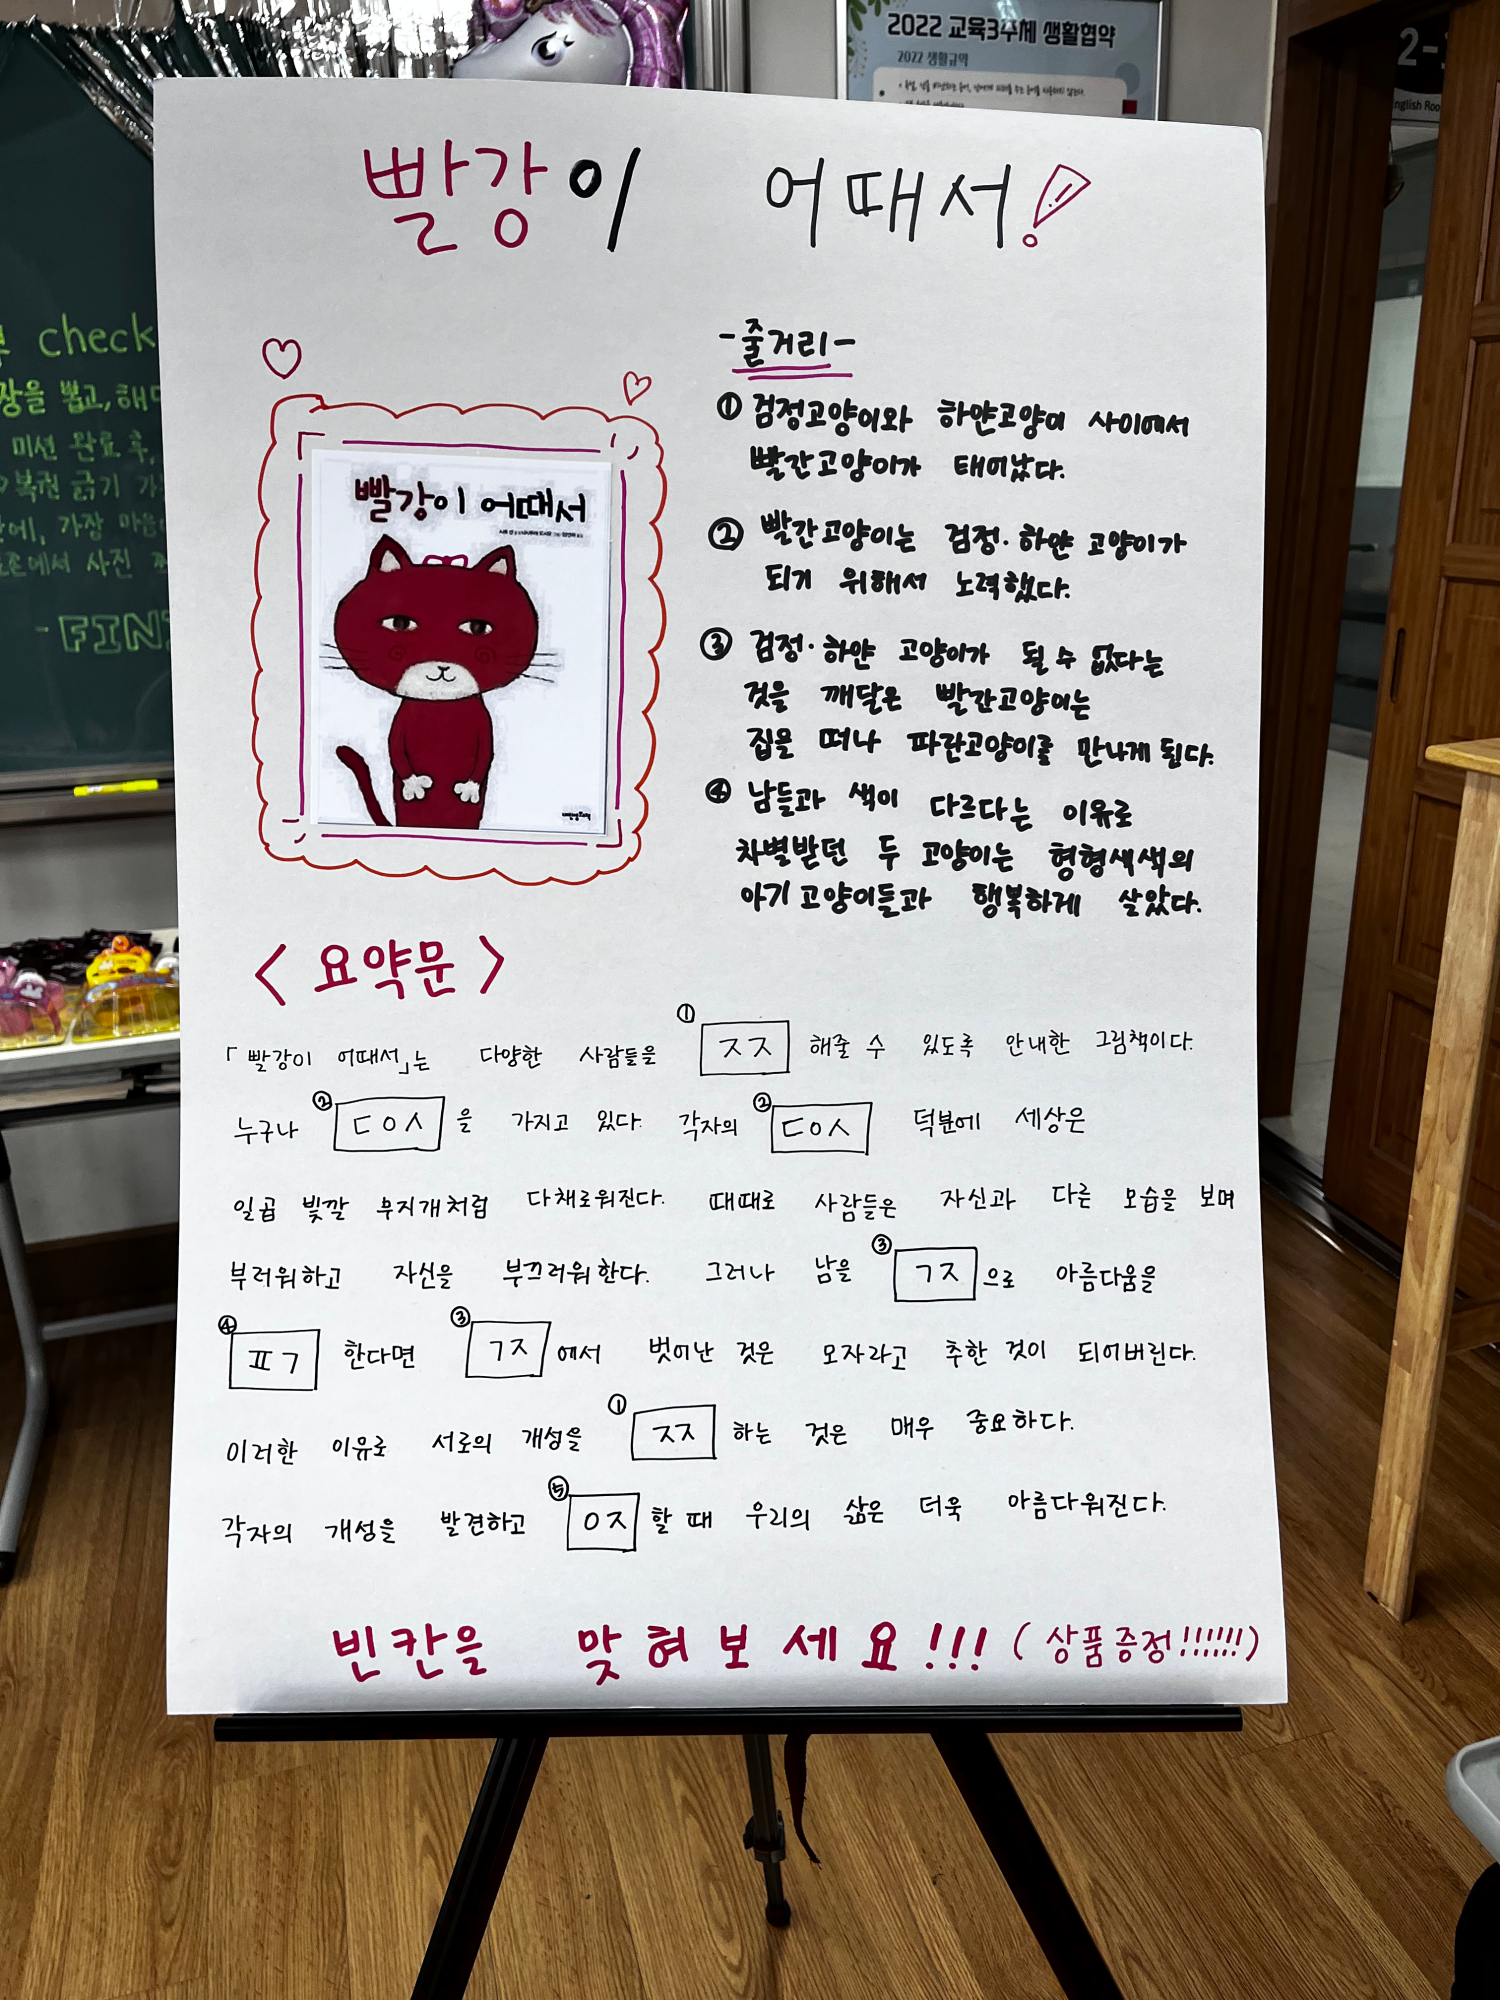 2022 교육3주체 생활협약
2022 생활규약
English Roo
check
장을 뽑고, 해
미션 완료 후,
복권 긁기
가장
에서 사진
- FINI
빨강이 어때서!
빨강이 어때서
- 줄거리 -
① 검정고양이와 하얀고양이 사이에서
빨간고양이가 태어났다.
② 빨간고양이는 검정·하얀 고양이가
되기 위해서 노력했다.
③ 검정·하얀 고양이가 될 수 없다는
것을 깨달은 빨간고양이는
집을 떠나 파란고양이를 만나게 된다.
④ 남들과 색이 다르다는 이유로
차별받던 두 고양이는 형형색색의
아기 고양이들과 행복하게 살았다.
< 요약문 >
「빨강이 어때서」는 다양한 사람들을 ① ㅈㅈ 해줄 수 있도록 안내한 그림책이다.
누구나 ② ㄷㅇㅅ 을 가지고 있다. 각자의 ② ㄷㅇㅅ 덕분에 세상은
일곱 빛깔 무지개처럼 다채로워진다. 때때로 사람들은 자신과 다른 모습을 보며
부러워하고 자신을 부끄러워한다. 그러나 남을 ③ ㄱㅈ 으로 아름다움을
④ ㅍㄱ 한다면 ③ ㄱㅈ 에서 벗어난 것은 모자라고 추한 것이 되어버린다.
이러한 이유로 서로의 개성을 ① ㅈㅈ 하는 것은 매우 중요하다.
각자의 개성을 발견하고 ⑤ ㅇㅈ 할 때 우리의 삶은 더욱 아름다워진다.
빈칸을 맞혀보세요!!! (상품증정!!!!!!)